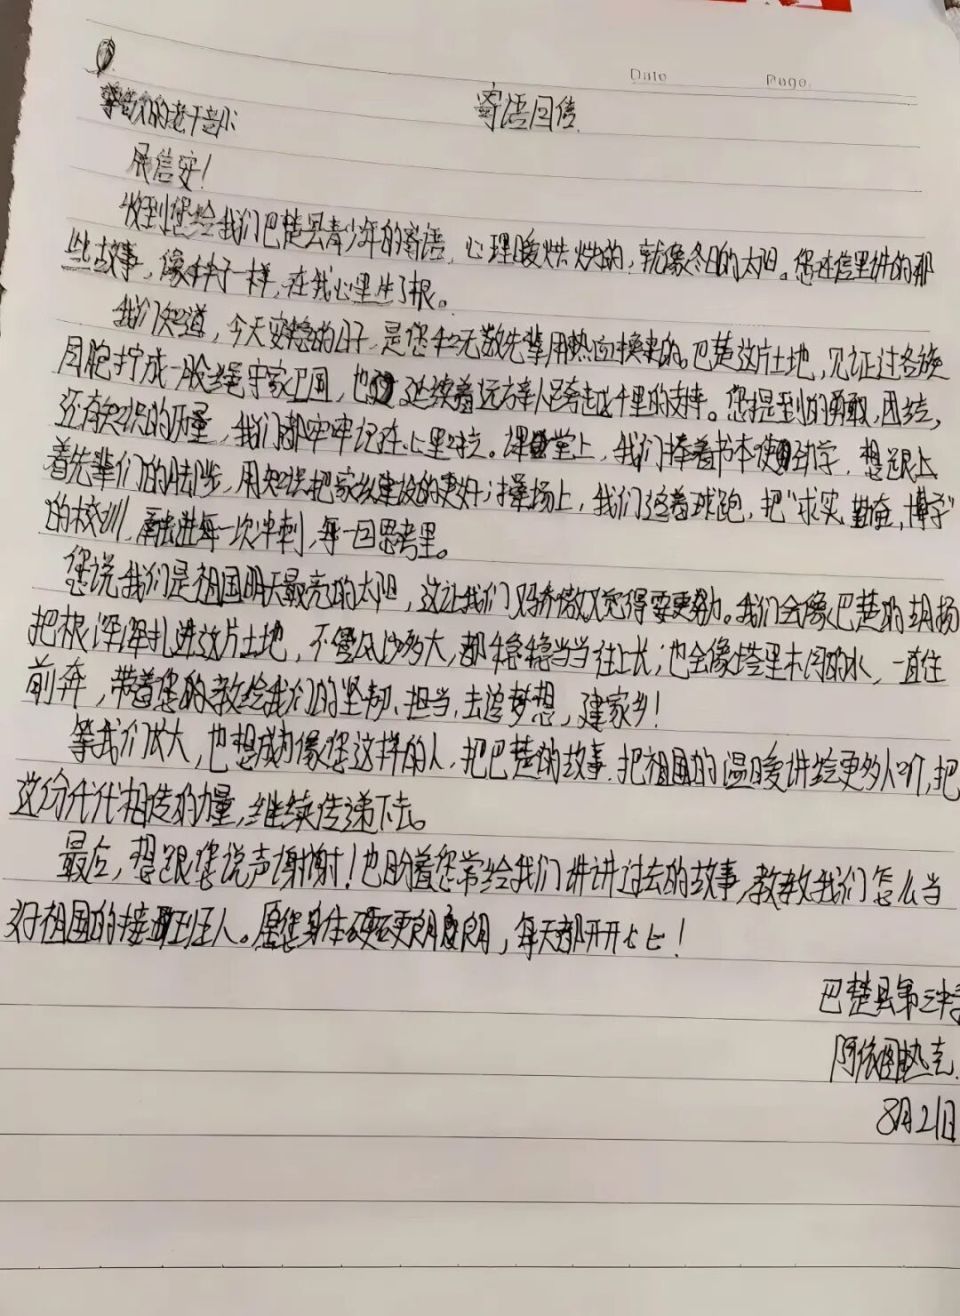 Date Page
寄语回信
尊敬的老干部:
展信安!
收到您给我们巴楚县青少年的寄语,心理暖烘烘的,就像冬日的太阳。您在信里讲的那
些故事,像种子一样,在我心里生了根。
我们知道,今天安稳的日子,是您和无数先辈用热血换来的。巴楚这片土地,见证过各族
同胞拧成一股绳守家卫国,也延续着远方亲人跨越千里的支持。您提到的勇敢,团结,
还有知识的力量,我们都牢牢记在心里。课堂上,我们捧着书本使劲学,想跟上
着先辈们的脚步,用知识把家乡建设的更好;操场上,我们追着球跑,把“求实,勤奋,博学”
的校训,融进每一次冲刺,每一回思考里。
您说我们是祖国明天最亮的太阳,这让我们又骄傲又觉得要更努力。我们会像巴楚的胡杨
把根深深扎进这片土地,不管风沙多大,都稳稳当当往上长;也会像塔里木河的水,一直往
前奔,带着您的教给我们的坚韧、担当,去追梦想,建家乡!
等我们长大,也想成为像您这样的人,把巴楚的故事,把祖国的温暖讲给更多人听,把
这份代代相传的力量,继续传递下去。
最后,想跟您说声谢谢!也盼着您常给我们讲讲过去的故事,教教我们怎么当
好祖国的接班人。愿您身体硬硬朗朗,每天都开开心心!
巴楚县第三中学
阿依图热克
8月21日